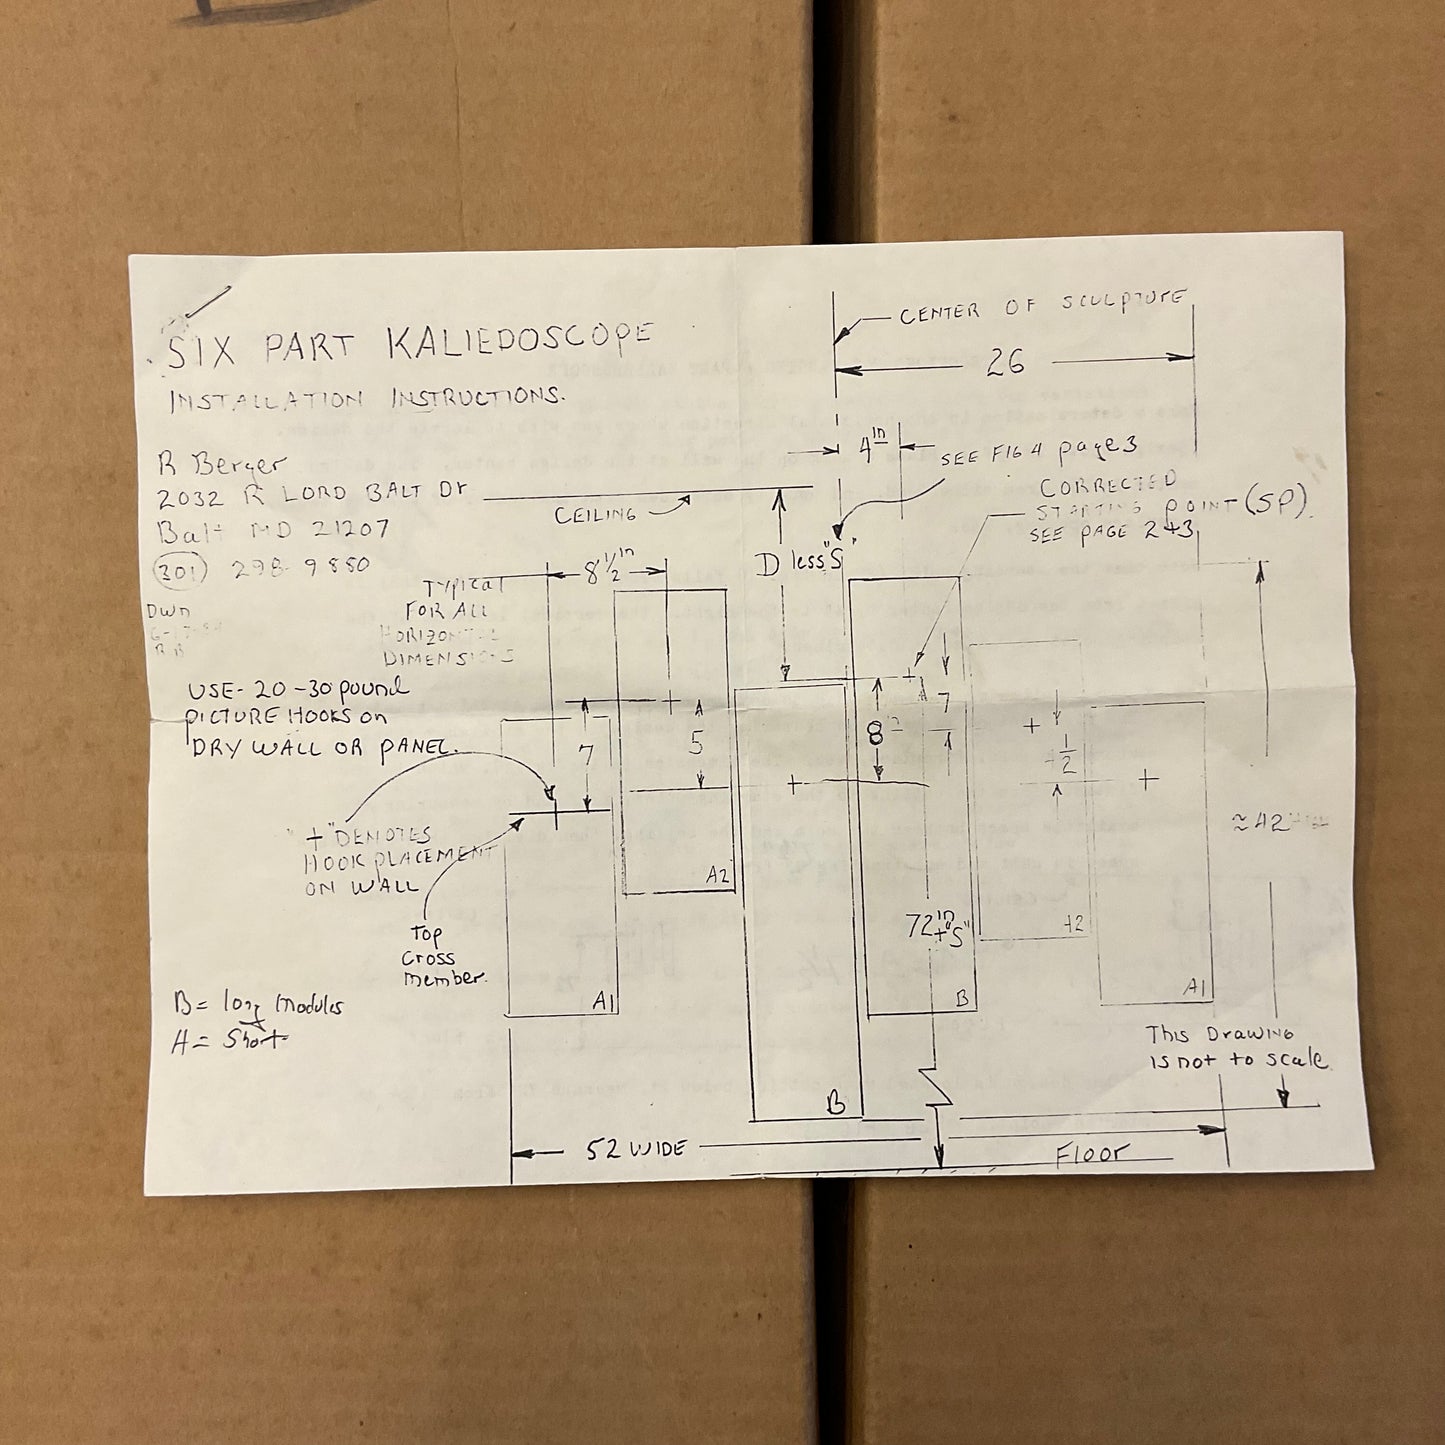 SIX PART KALIEDOSCOPE
INSTALLATION INSTRUCTIONS.
R Berger
2032 R LORD BALT Dr
Balt MD 21207
(301) 298-9880
DWN
RB
USE- 20-30 pound
PICTURE HOOKS on
DRY WALL OR PANEL.
"+" DENOTES
HOOK PLACEMENT
ON WALL
Top
Cross
member.
B = long Modules
A = Short
CENTER OF SCULPTURE
26
4 in
SEE FIG 4 page 3
CORRECTED
STARTING POINT (SP).
SEE PAGE 2+3
CEILING
D less "S"
8 1/2 in
TYPICAL
FOR ALL
HORIZONTAL
DIMENSIONS
7
5
8
7
1/2
≈42
72 in + "S"
A1
A2
B
B
A1
This Drawing
is not to scale
52 WIDE
Floor